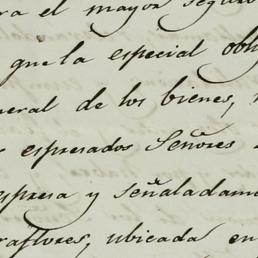 ra el mayor seguro
que la especial obli
neral de los bienes,
espresados Señores
espresa y señaladame
raflores, ubicada en